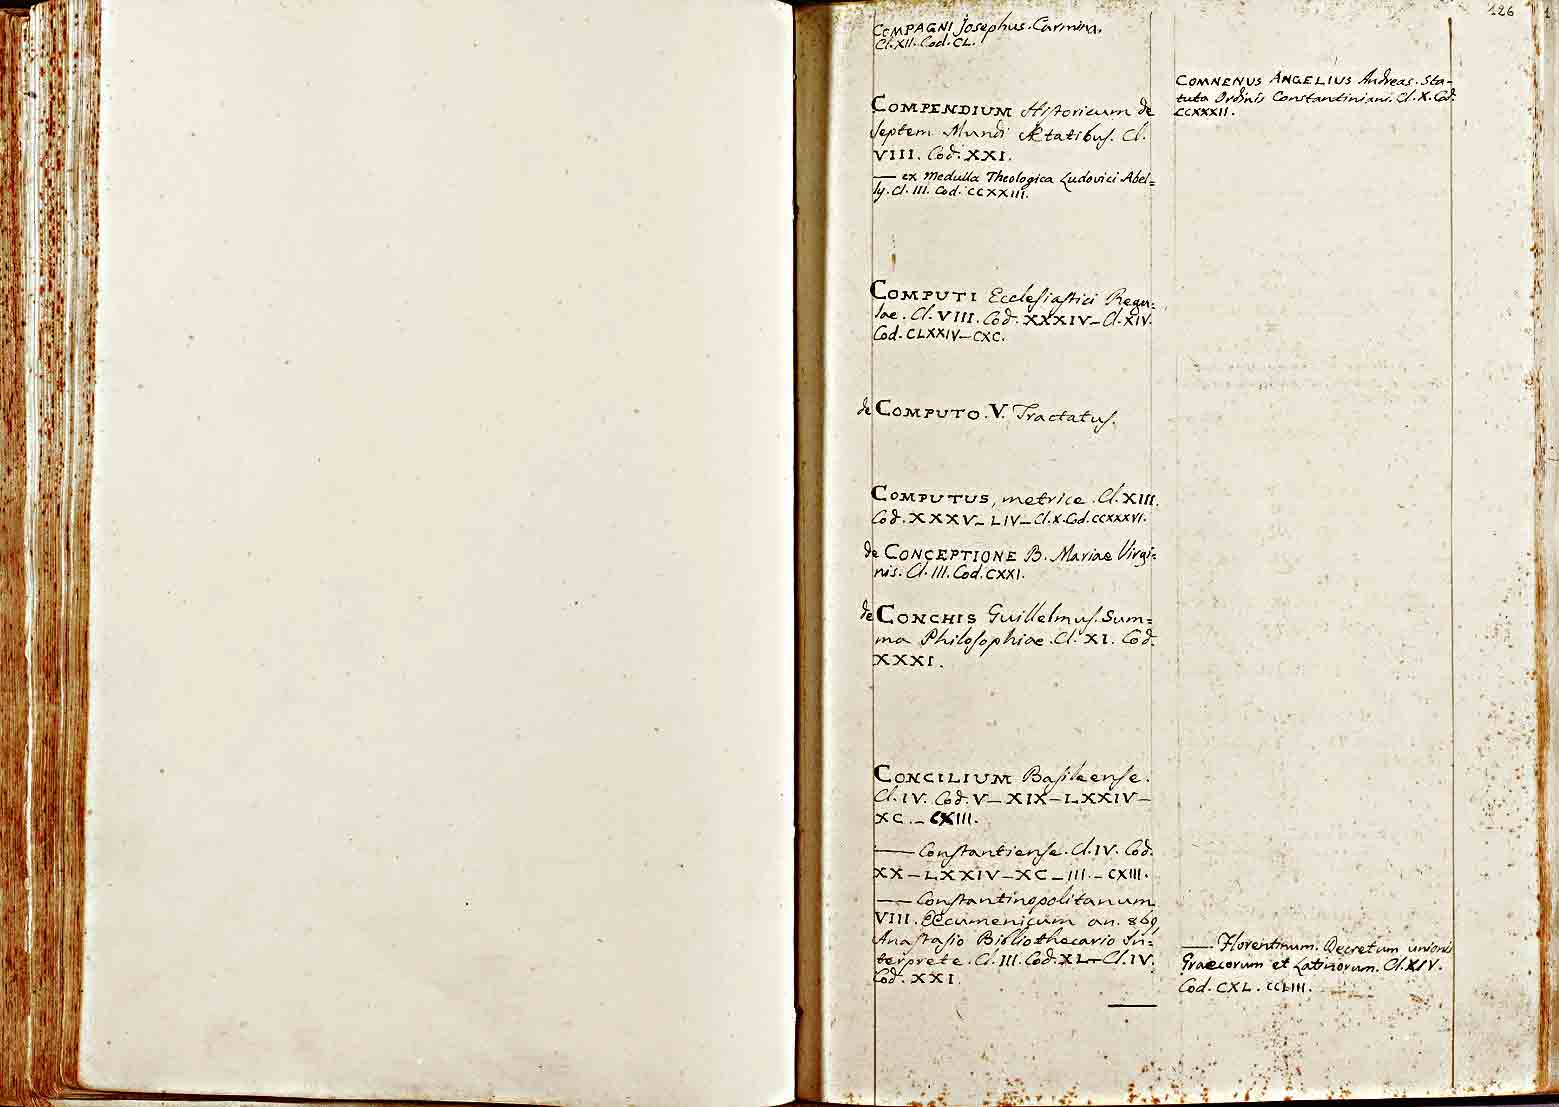 126
COMPAGNI Josephus. Carmina.
Cl. XII. Cod. CL.
COMPENDIUM Historicum de
septem Mundi Ætatibus. Cl.
VIII. Cod. XXI.
— ex Medulla Theologica Ludovici Abel=
ly. Cl. III. Cod. CCXXIII.
COMPUTI Ecclesiastici Regu=
lae. Cl. VIII. Cod. XXXIV — Cl. XIV.
Cod. CLXXIV — CXC.
de COMPUTO. V. Tractatus.
COMPUTUS, metrice. Cl. XIII.
Cod. XXXV — LIV — Cl. X. Cod. CCXXXVI.
de CONCEPTIONE B. Mariae Virgi=
nis. Cl. III. Cod. CXXI.
de CONCHIS Guillelmus. Sum=
ma Philosophiae. Cl. XI. Cod.
XXXI.
CONCILIUM Basileense.
Cl. IV. Cod. V — XIX — LXXIV —
XC. — CXIII.
— Constantiense. Cl. IV. Cod.
XX — LXXIV — XC — III — CXIII.
— Constantinopolitanum
VIII. Œcumenicum an. 869
Anastasio Bibliothecario In=
terprete. Cl. III. Cod. XL — Cl. IV.
Cod. XXI.
COMNENUS ANGELIUS Andreas. Sta-
tuta Ordinis Constantiniani. Cl. X. Cod.
CCXXXII.
— Florentinum. Decretum unionis
Graecorum et Latinorum. Cl. XIV.
Cod. CXL. CCLIII.